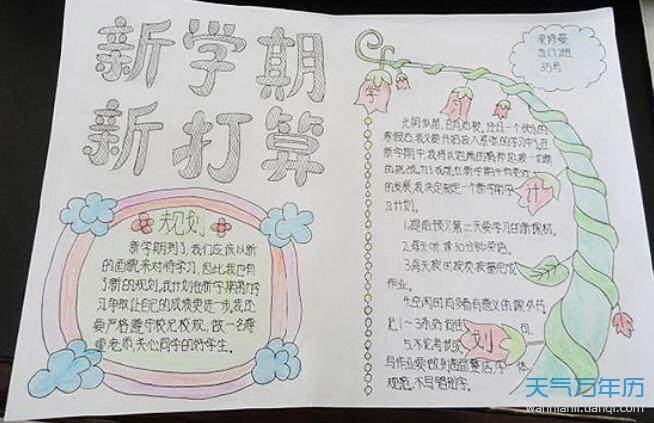 新学期
新打算
规划
新学期到了,我们应该以新
的面貌来对待学习,因此我也有
了新的规划,我计划在新学期努力学
习,争取让自己的成绩更进一步,我还
要严格遵守校纪校规,做一名尊
重老师,关心同学的好学生。
35号
学
习
计
划
光阴似箭,日月如梭,经过一个快乐的
寒假后,我又要开始投入紧张的学习中了,在
新学期中,我将以饱满的精神迎接一切新
的挑战,为了
的发展,我决定制定一个新学期学
习计划。
1.提前预习第二天要学习的新课程。
2.每天听读30分钟英语。
3.每天按时按质按量完成
作业。
4.空闲时多看有意义的课外书
记1~3条好词
5.不论考试或
写作业要做到书面整洁,字体
规范,不写错别字。
天气万年历
wannianli.tianqi.com